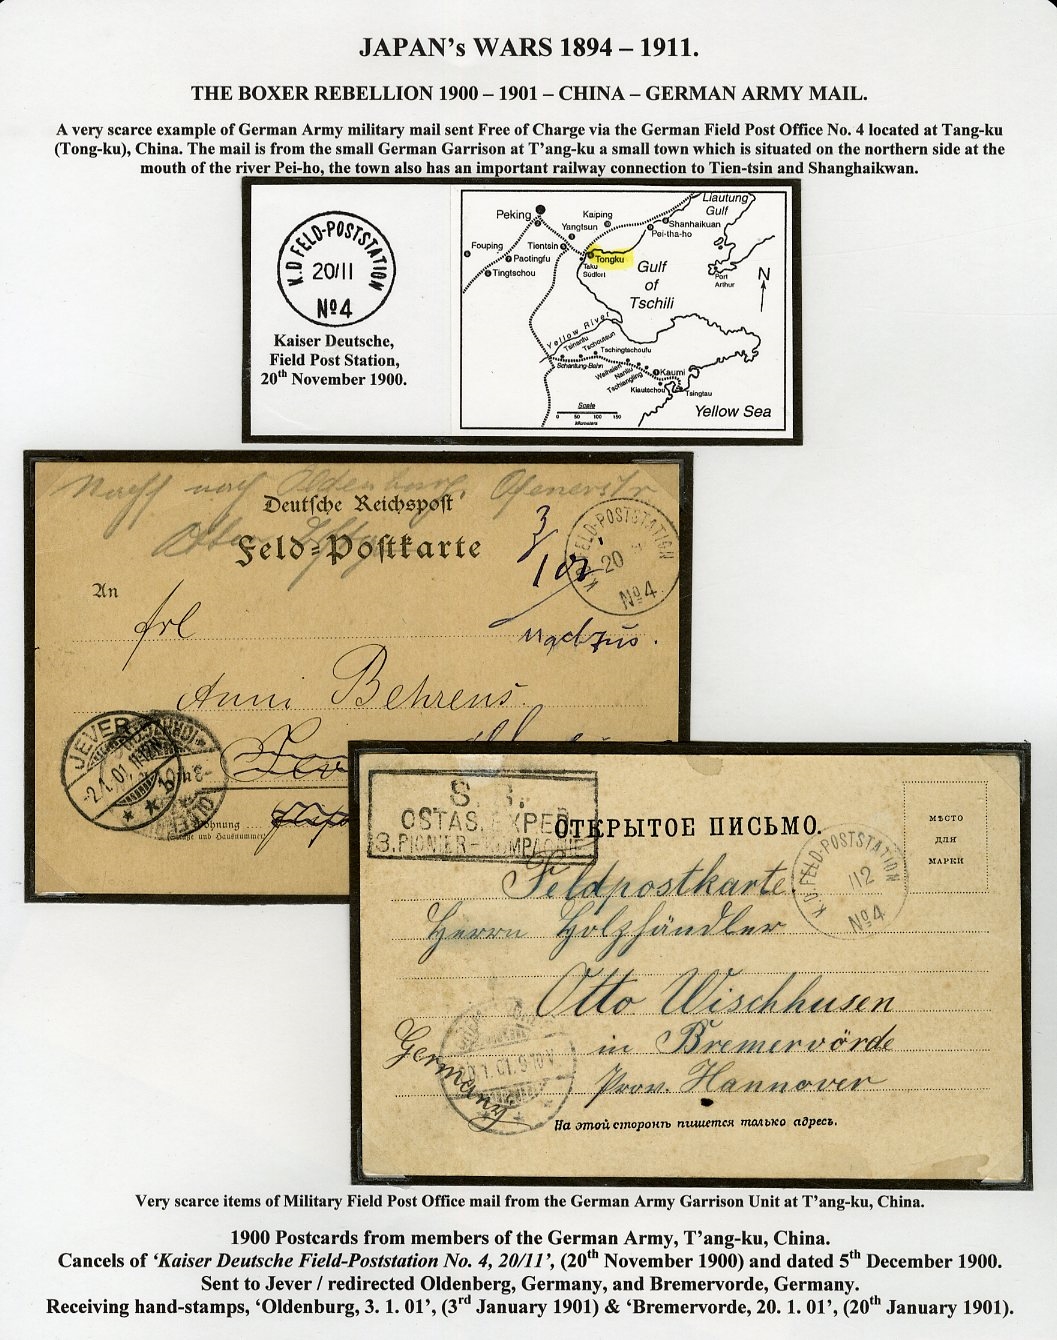 JAPAN's WARS 1894 – 1911.
THE BOXER REBELLION 1900 – 1901 – CHINA – GERMAN ARMY MAIL.
A very scarce example of German Army military mail sent Free of Charge via the German Field Post Office No. 4 located at Tang-ku
(Tong-ku), China. The mail is from the small German Garrison at T'ang-ku a small town which is situated on the northern side at the
mouth of the river Pei-ho, the town also has an important railway connection to Tien-tsin and Shanghaikwan.
K.D FELD-POSTSTATION
20/11
No 4
Kaiser Deutsche,
Field Post Station,
20th November 1900.
Liautung
Gulf
Peking
Kaiping
Yangtsun
Shanhaikuan
Pei-tha-ho
Fouping
Tientsin
Paotingfu
Tongku
Taku
Südfort
Tingtschou
Gulf
of
Tschili
Port
Arthur
N
Yellow River
Tsinanfu
Tschoutsun
Tschingtschoufu
Schantung-Bahn
Weihsien
Nanliu
Tschangling
Kaumi
Kiautschou
Tsingtau
Scale
0 50 100 150
Kilometers
Yellow Sea
nach Oldenburg, Ofenerstr
Deutsche Reichspost
Feld-Postkarte
3/1 01
K.D. FELD-POSTSTATION
20
No 4
An
Frl
Anni Behrens.
JEVER
-2.1.01
Wohnung
(Straße und Hausnummer)
S. B.
OSTAS. EXPED.
3. PIONIER-KOMPAGNIE
ОТКРЫТОЕ ПИСЬМО.
МѢСТО
ДЛИ
МАРКИ
K.D. FELD-POSTSTATION
112
No 4
Feldpostkarte.
Herrn Holzhändler
Otto Wischhusen
in Bremervörde
Prov. Hannover
Germany
20.1.01. 9-10 V.
На этой сторонѣ пишется только адресъ.
Very scarce items of Military Field Post Office mail from the German Army Garrison Unit at T'ang-ku, China.
1900 Postcards from members of the German Army, T'ang-ku, China.
Cancels of 'Kaiser Deutsche Field-Poststation No. 4, 20/11', (20th November 1900) and dated 5th December 1900.
Sent to Jever / redirected Oldenberg, Germany, and Bremervorde, Germany.
Receiving hand-stamps, 'Oldenburg, 3. 1. 01', (3rd January 1901) & 'Bremervorde, 20. 1. 01', (20th January 1901).